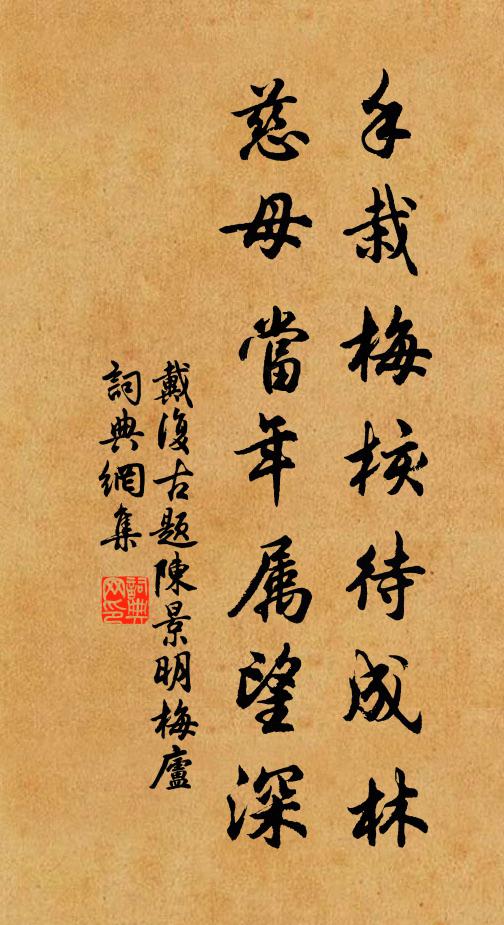 手栽梅核待成林
慈母當年属望深
戴復古题陳景明梅廬
詞典網集
詞典網印